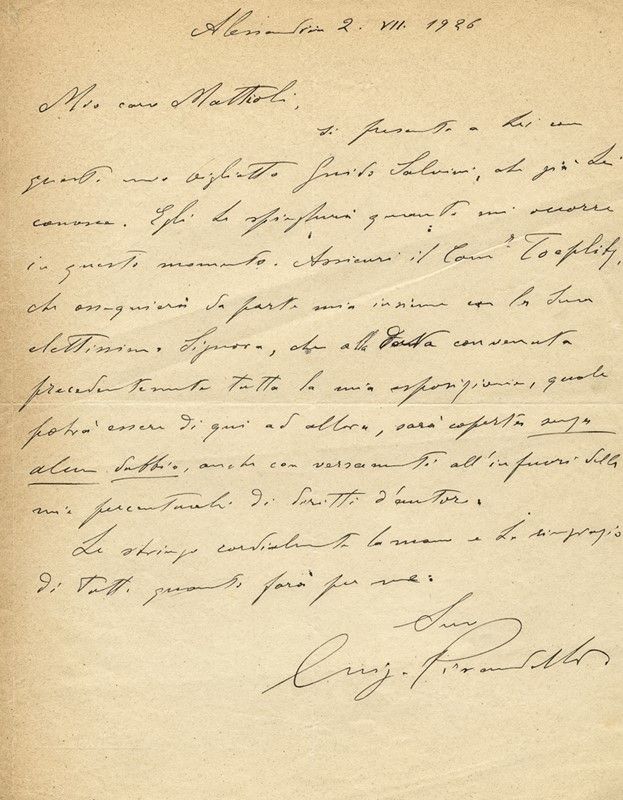 Alessandria 2. VII. 1926
Mio caro Mattioli,
si presenta a Lei con
questo mio biglietto Guido Salvini, che già La
conosce. Egli Le spiegherà quanto mi occorre
in questo momento. Assicuri il Comm.r Toeplitz,
che ossequierà da parte mia insieme con la Sua
elettissima Signora, che alla data convenuta
precedentemente tutta la mia esposizione, quale
potrà essere di qui ad allora, sarà coperta senza
alcun dubbio, anche con versamenti all'infuori della
mia percentuale di diritti d'autore.
Le stringo cordialmente la mano e La ringrazio
di tutto quanto farà per me.
Suo
Luigi Pirandello